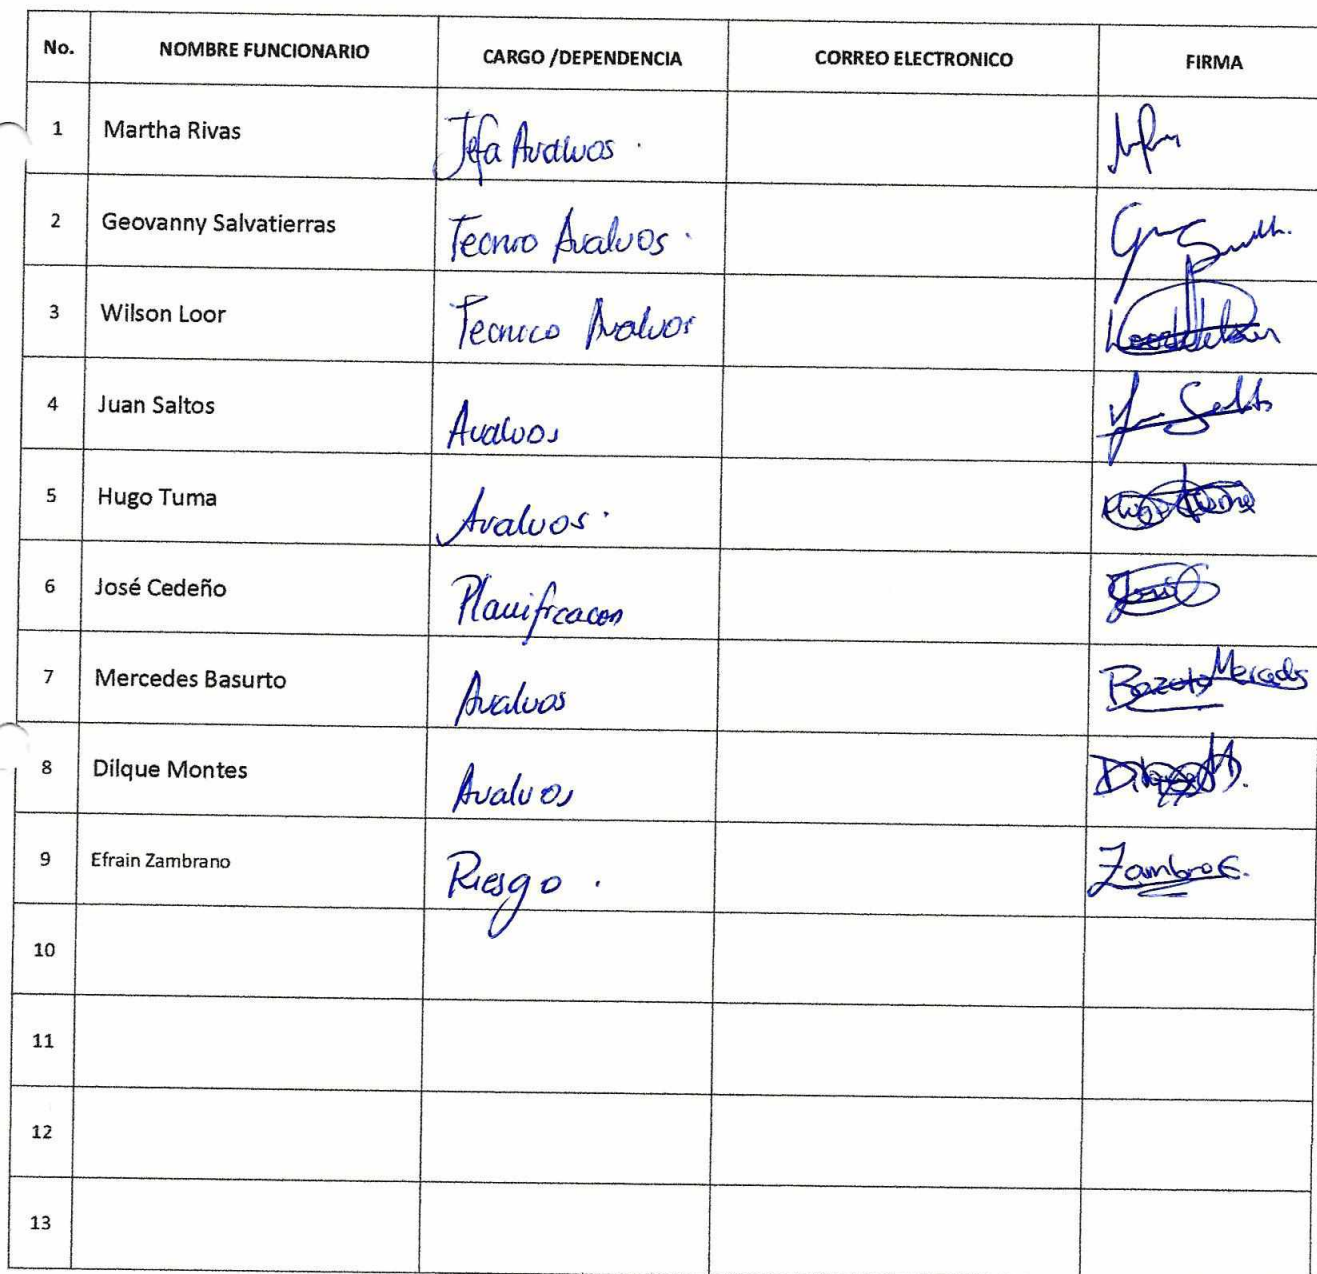 No. NOMBRE FUNCIONARIO CARGO /DEPENDENCIA CORREO ELECTRONICO FIRMA
1 Martha Rivas Jefa Avaluos.
2 Geovanny Salvatierras Tecnico Avaluos.
3 Wilson Loor Tecnico Avaluos
4 Juan Saltos Avaluos
5 Hugo Tuma Avaluos.
6 José Cedeño Planificacon
7 Mercedes Basurto Avaluos Mercedes
8 Dilque Montes Avaluos
9 Efrain Zambrano Riesgo. Zambro E.
10
11
12
13